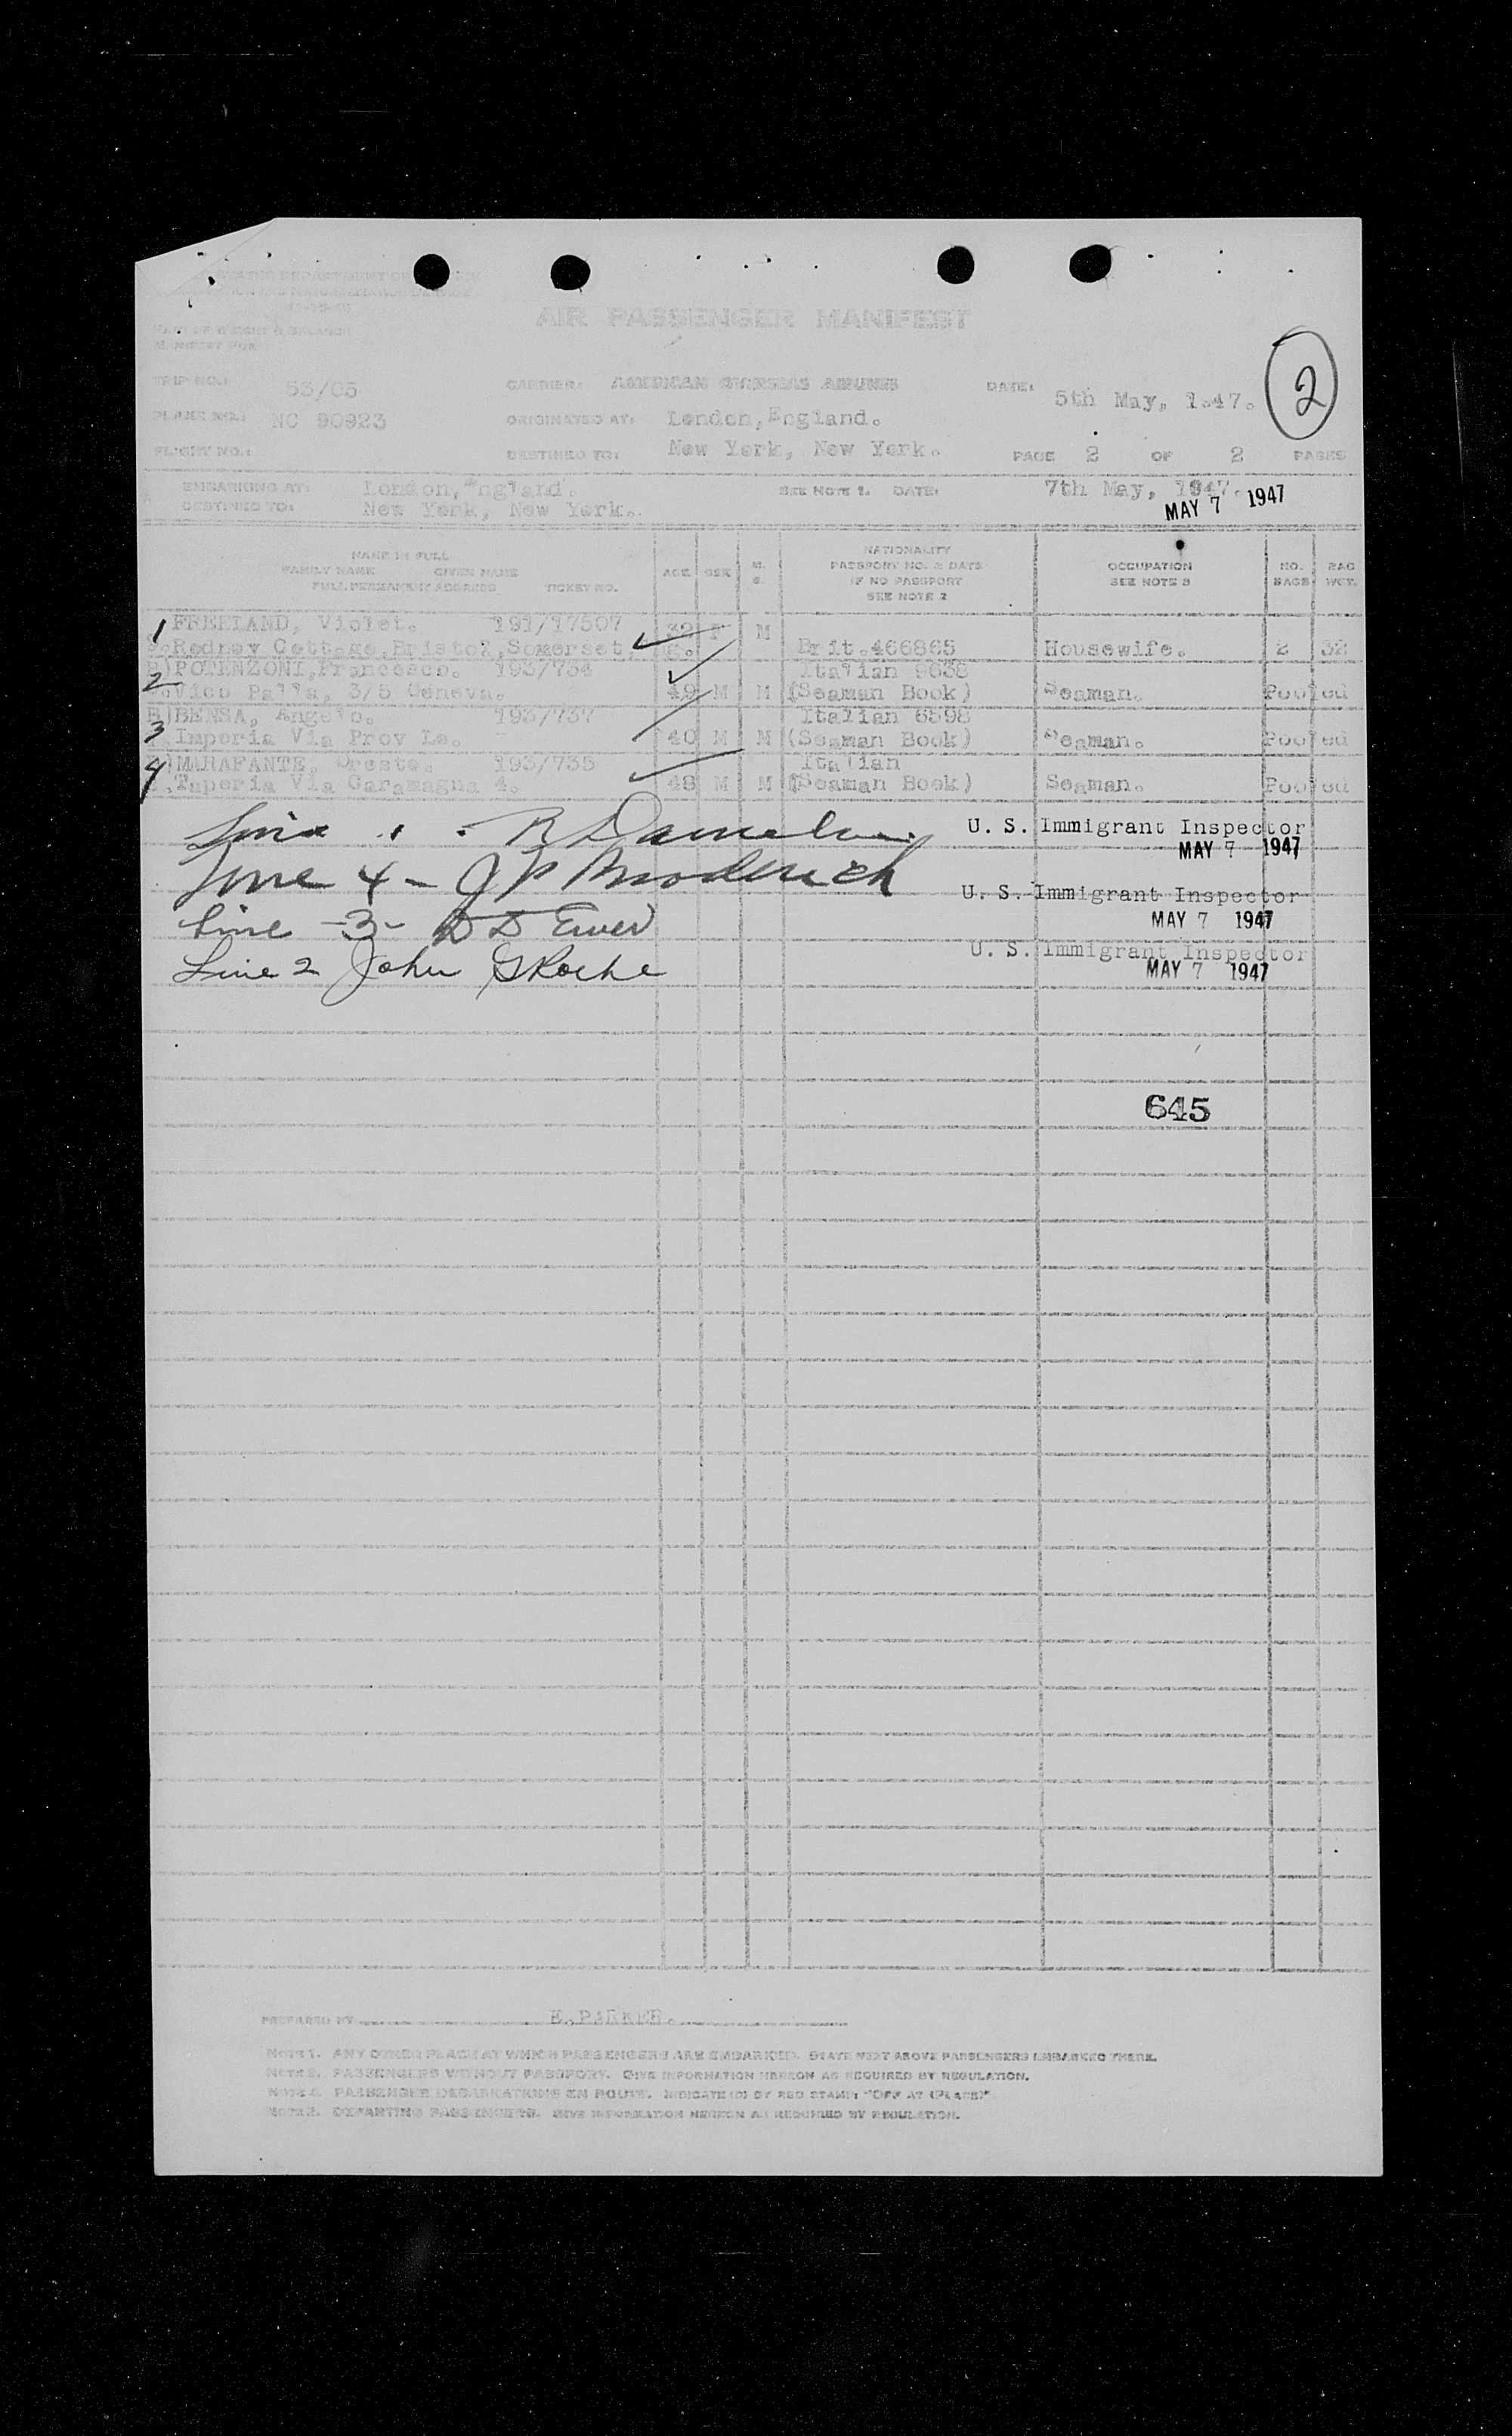 AIR PASSENGER MANIFEST
MANIFEST FOR
2
TRIP NO.: 53/05 CARRIER: AMERICAN OVERSEAS AIRLINES DATE: 5th May, 1.47.
PLANE NO.: NC 90923 ORIGINATED AT: London, England.
FLIGHT NO.: DESTINED TO: New York, New York. PAGE 2 OF 2 PAGES
EMBARKING AT: London, England. SEE NOTE 1. DATE: 7th May, 1947.
DESTINED TO: New York, New York. MAY 7 1947
NAME IN FULL
FAMILY NAME GIVEN NAME
FULL PERMANENT ADDRESS TICKET NO.
AGE SEX M. S.
NATIONALITY
PASSPORT NO. & DATE
IF NO PASSPORT
SEE NOTE 2
OCCUPATION
SEE NOTE 3
NO. BAGS
BAG WGT.
1 FREELAND, Violet. 191/17507 32 F M
Rodney Cottage, Bristol, Somerset, Brit.466865 Housewife. 2 32
2 POTENZONI, Francesco. 193/734 Italian 9638
Vico Palla, 3/5 Geneva. 49 M M (Seaman Book) Seaman. Pooled
3 BENSA, Angelo. 193/737 Italian 6598
Imperia Via Prov Le. 40 M M (Seaman Book) Seaman. Pooled
4 MARAFANTE, Oreste. 193/735 Italian
Taperia Via Caramagna 4. 48 M M (Seaman Book) Seaman. Pooled
Line U. S. Immigrant Inspector
MAY 7 1947
Line 4 - J P Broderick U. S. Immigrant Inspector
Line -3- D D Ewer MAY 7 1947
U. S. Immigrant Inspector
Line 2 John G Roche MAY 7 1947
645
PREPARED BY E. PARKER.
NOTE 1. ANY OTHER PLACE AT WHICH PASSENGERS ARE EMBARKED. STATE NEXT ABOVE PASSENGERS EMBARKED THERE.
NOTE 2. PASSENGERS WITHOUT PASSPORT. GIVE INFORMATION HEREON AS REQUIRED BY REGULATION.
PASSENGER DEBARKATIONS EN ROUTE. INDICATE (D) BY RED STAMP "OFF AT (PLACE)"
NOTE 3. DEPARTING PASSENGERS. GIVE INFORMATION HEREON AS REQUIRED BY REGULATION.